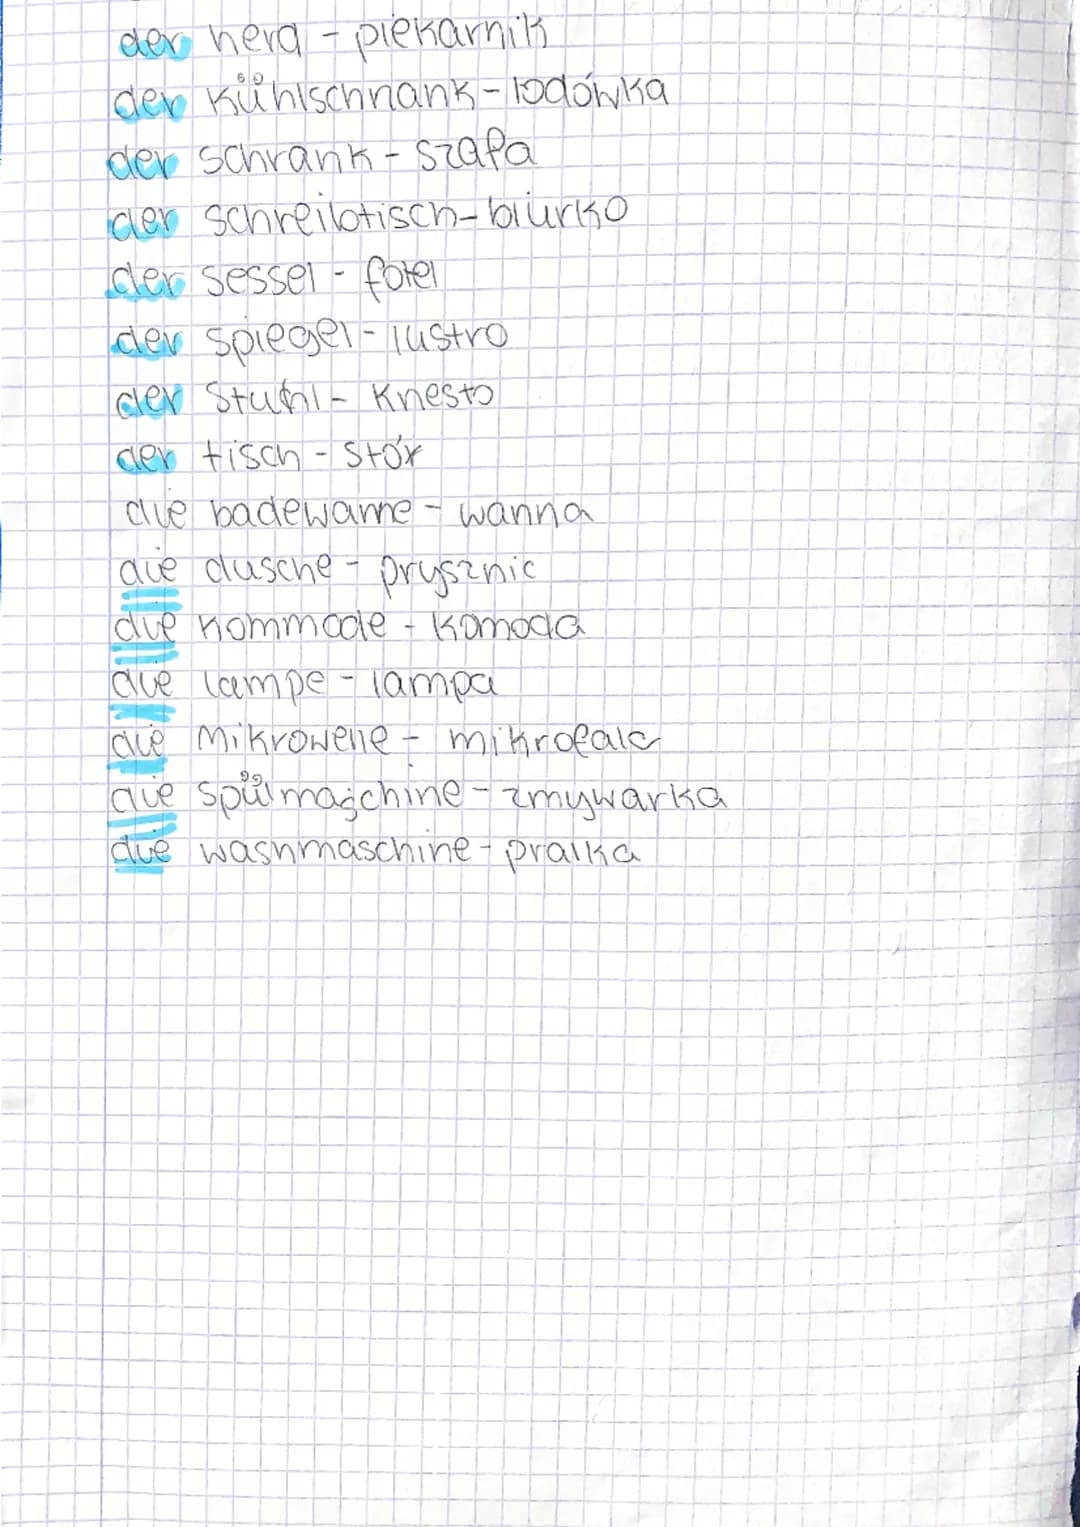 der herd - piekarnik
der Kühlschrank - lodówka
der schrank - szafa
der schreibtisch - biurko
der sessel - fotel
der spiegel - lustro
der Stuhl - Krzesło
der tisch - stół
die badewanne - wanna
die dusche - prysznic
die kommode - komoda
die lampe - lampa
die Mikrowelle - mikrofala
die spülmaschine - zmywarka
die washmaschine - pralka